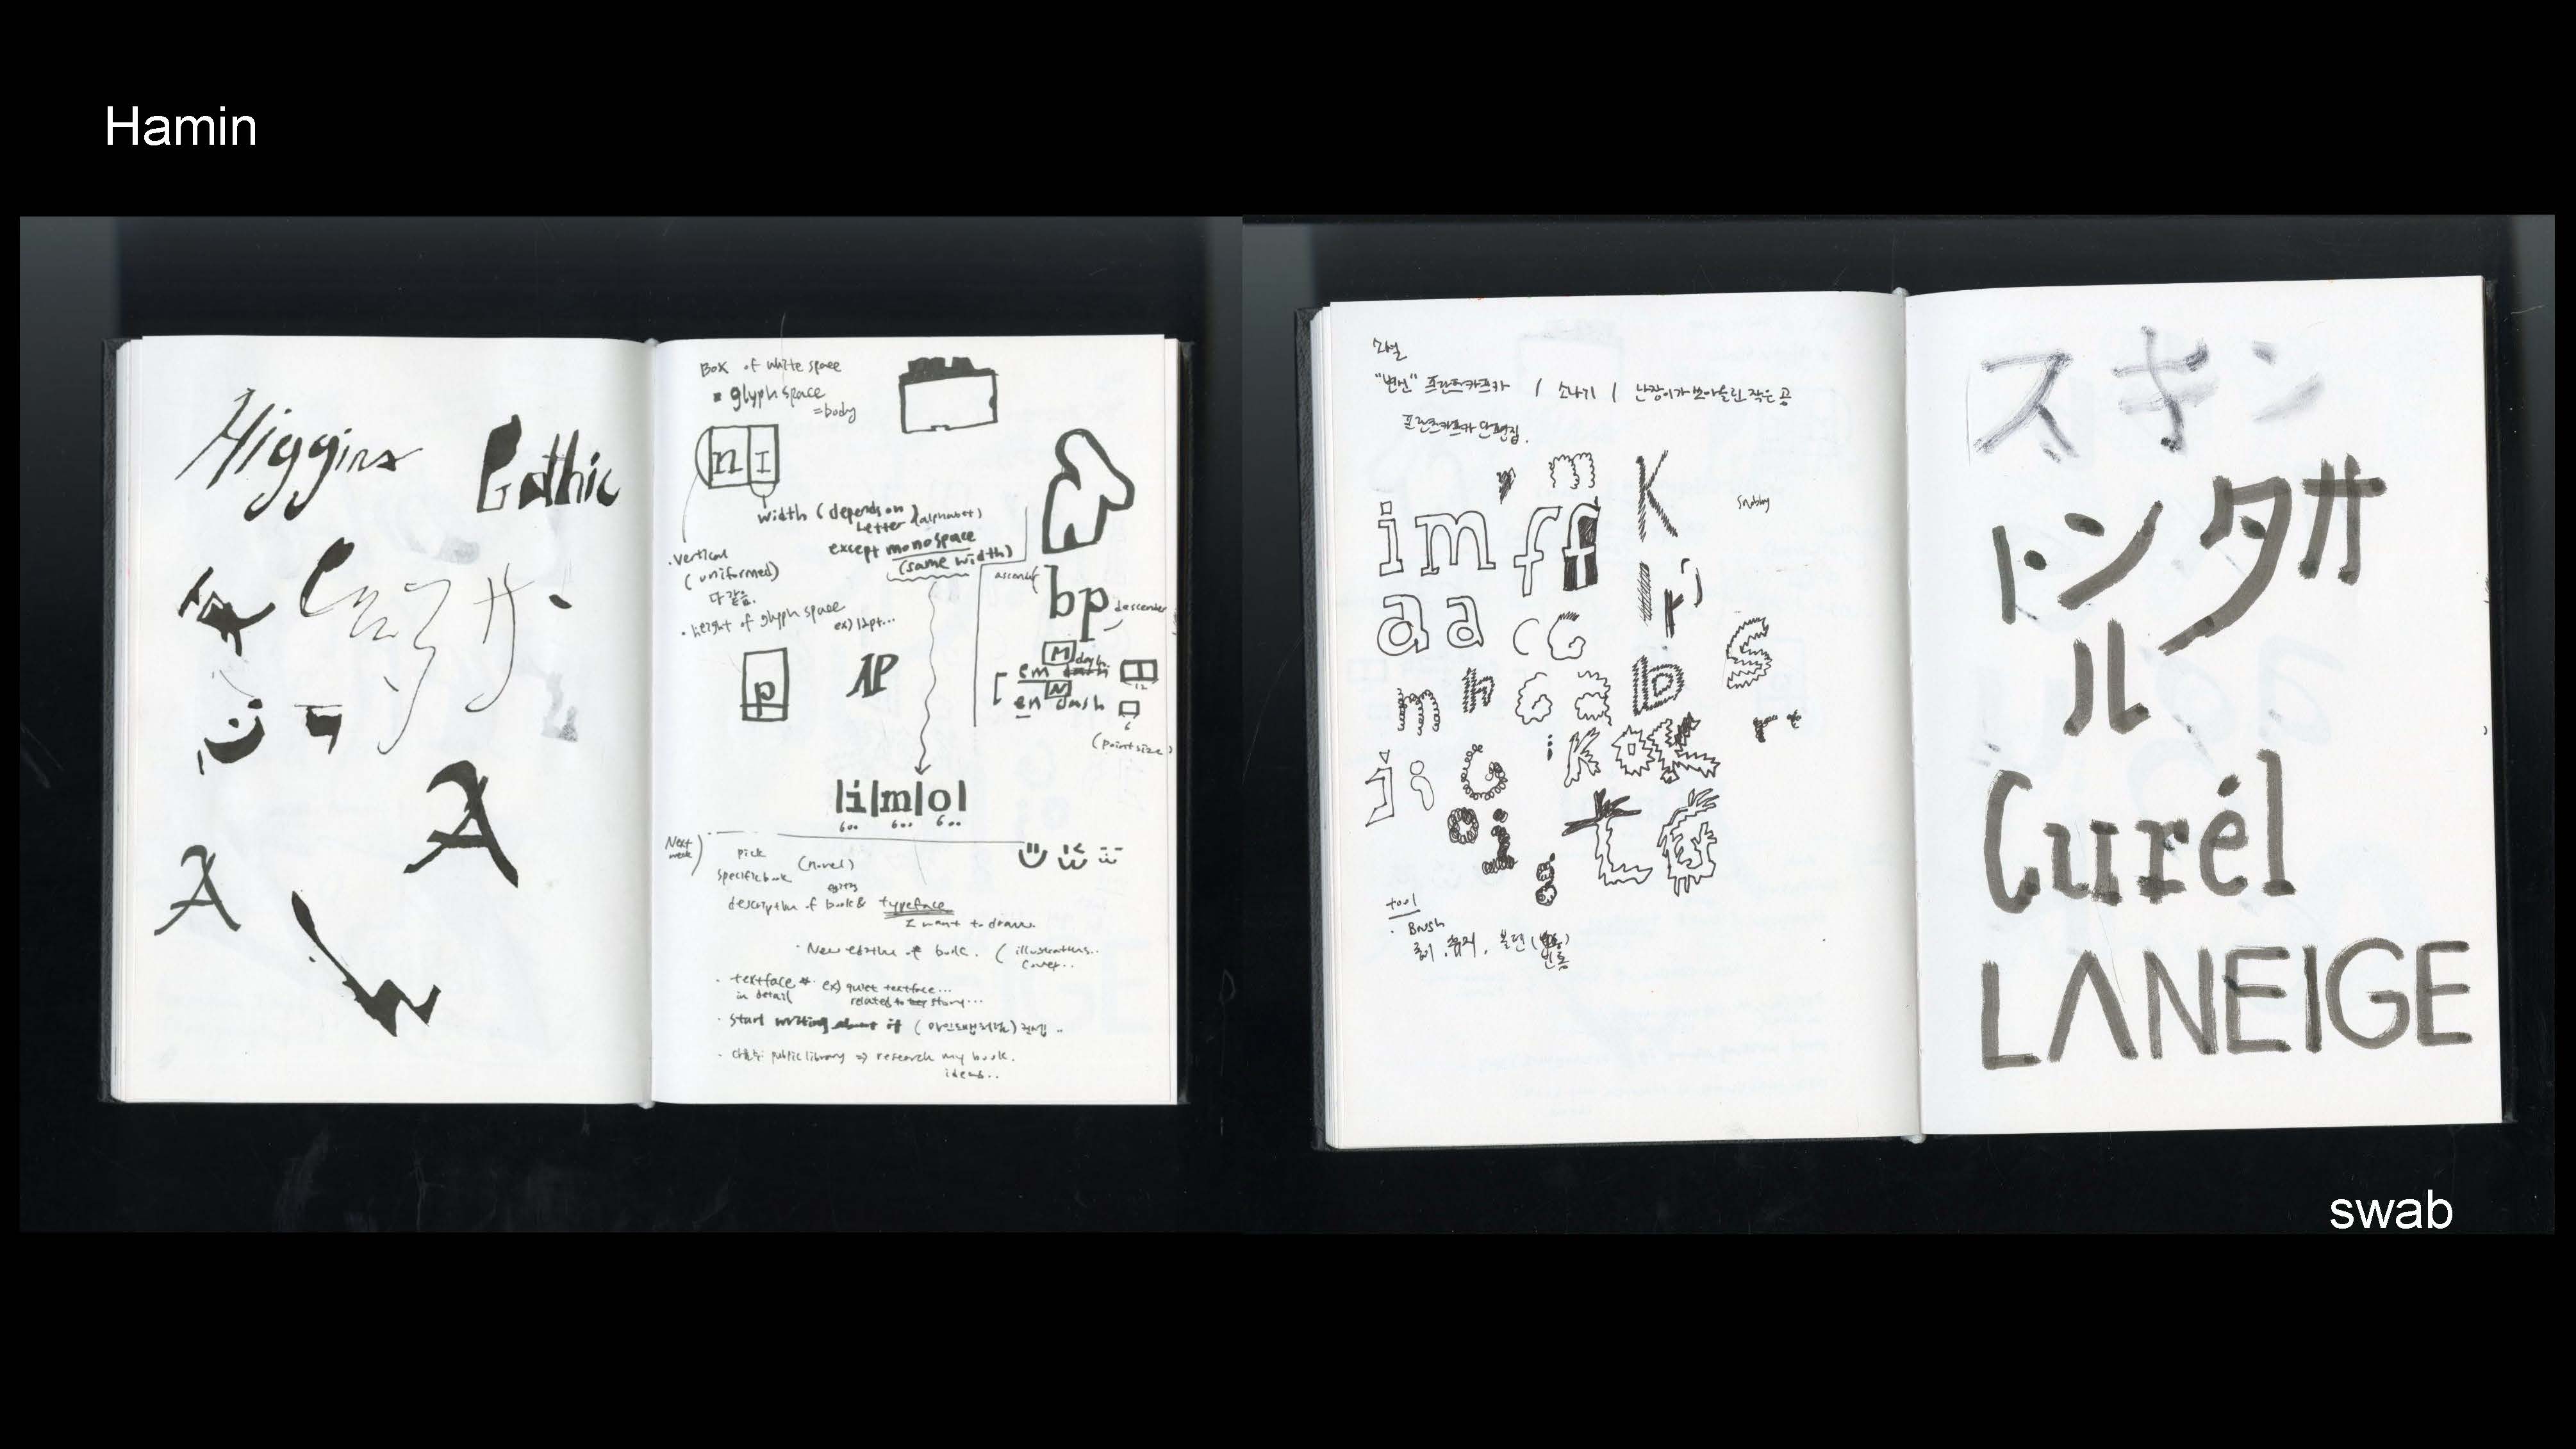 Hamin
Higgins
Gothic
A
A
h
Box of white space
glyph space
=body
n I
width (depends on letter (alphabet)
except monospace
(same width)
• vertical
(uniformed)
다 같음.
• height of glyph space
ex) 12pt...
p
AP
ascender
bp
descender
M
em dash
N
en dash
12
6
(point size)
|i|m|o|
600 600 600
Next week)
pick
specific book (Novel)
description of book & typeface
I want to draw.
• New edition of book. (illustrations..
cover..
• textface
in detail
ex) quiet textface...
related to story...
• start writing about it
public library => research my book.
ideas..
소설
"변신" 프란츠카프카 / 소나기 / 난장이가 쏘아올린 작은 공
프란츠카프카 단편집.
r m K
i m f f
a a c G
m h
b
r t
j i G
i K
t
g
tool
• Brush
スキン
トンタサ
ル
Curél
LANEIGE
swab